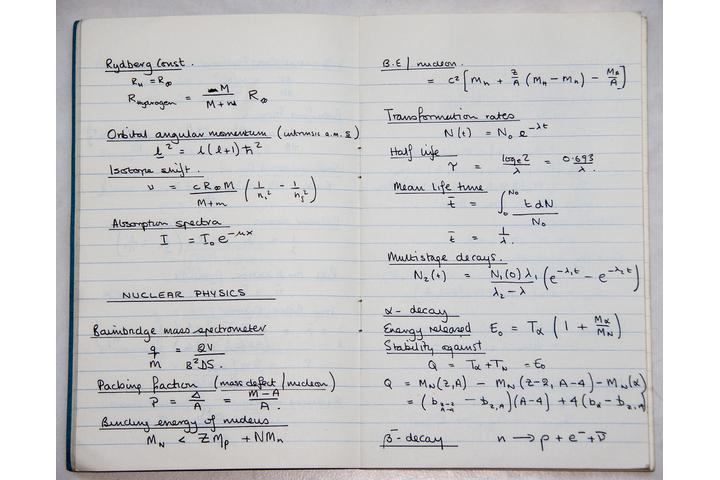 Rydberg Const.
R_H = R_∞
R_hydrogen = M/(M+m) R_∞
Orbital angular momentum (intrinsic a.m. s)
l² = l(l+1)ħ²
Isotope shift.
ν = cR_∞M/(M+m) (1/n_i² - 1/n_j²)
Absorption spectra
I = I₀e^(-μx)
NUCLEAR PHYSICS
Bainbridge mass spectrometer
q/m = 2V/(B²DS).
Packing fraction (mass defect/nucleon)
P = Δ/A = (M-A)/A.
Binding energy of nucleus
M_N < Zm_p + Nm_n
B.E/nucleon.
= c²[m_n + Z/A (M_H - m_n) - M_A/A]
Transformation rates
N(t) = N₀ e^(-λt)
Half life
τ = log_e2/λ = 0.693/λ.
Mean life time
t̄ = ∫₀^N₀ t dN/N₀
t̄ = 1/λ.
Multistage decays.
N₂(t) = N₁(0)λ₁/(λ₂-λ) (e^(-λ₁t) - e^(-λ₂t))
α-decay
Energy released E₀ = T_α (1 + M_α/M_N)
Stability against
Q = T_α + T_N = E₀
Q = M_N(Z,A) - M_N(Z-2, A-4) - M_N(α)
= (b_(Z-2, A-4) - b_(Z,A))(A-4) + 4(b_α - b_(Z,A))
β⁻-decay n → p + e⁻ + ν̄